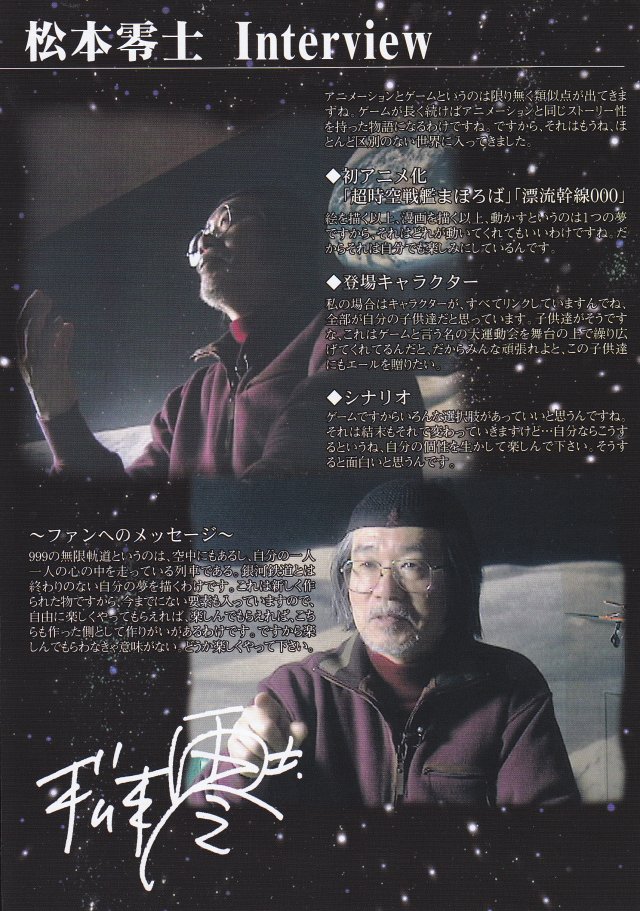 松本零士 Interview
アニメーションとゲームというのは限り無く類似点が出てきま
すね。ゲームが長く続けばアニメーションと同じストーリー性
を持った物語になるわけですね。ですから、それはもうね、ほ
とんど区別のない世界に入ってきました。
◆初アニメ化
「超時空戦艦まほろば」「漂流幹線000」
絵を描く以上、漫画を描く以上、動かすというのは1つの夢
ですから、それはどれが動いてくれてもいいわけですね。だ
からそれは自分でも楽しみにしているんです。
◆登場キャラクター
私の場合はキャラクターが、すべてリンクしていますんでね、
全部が自分の子供達だと思っています。子供達がそうです
な、これはゲームと言う名の大運動会を舞台の上で繰り広
げてくれてるんだと、だからみんな頑張れよと、この子供達
にもエールを贈りたい。
◆シナリオ
ゲームですからいろんな選択肢があっていいと思うんですね。
それは結末もそれで変わっていきますけど…自分ならこうす
るというね、自分の個性を生かして楽しんで下さい。そうす
ると面白いと思うんです。
～ファンへのメッセージ～
999の無限軌道というのは、空中にもあるし、自分の一人
一人の心の中を走っている列車である。銀河鉄道とは
終わりのない自分の夢を描くわけです。これは新しく作
られた物ですから、今までにない要素も入っていますので、
自由に楽しくやってもらえれば、楽しんでもらえれば、こち
らも作った側として作りがいがあるわけです。ですから楽
しんでもらわなきゃ意味がない。どうか楽しくやって下さい。
松本零士